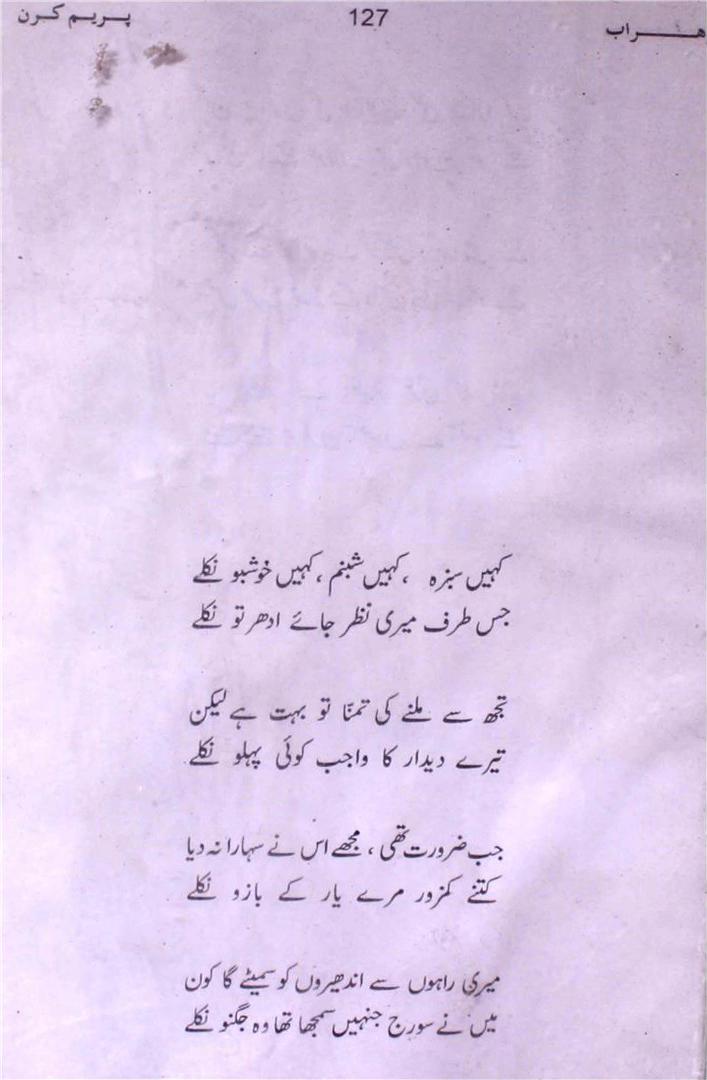 ھراب
127
پریم کرن
کہیں سبزہ ، کہیں شبنم ، کہیں خوشبو نکلے
جس طرف میری نظر جائے ادھر تو نکلے
تجھ سے ملنے کی تمنّا تو بہت ہے لیکن
تیرے دیدار کا واجب کوئی پہلو نکلے
جب ضرورت تھی ، مجھے اس نے سہارا نہ دیا
کتنے کمزور مرے یار کے بازو نکلے
میری راہوں سے اندھیروں کو سمیٹے گا کون
میں نے سورج جنہیں سمجھا تھا وہ جگنو نکلے